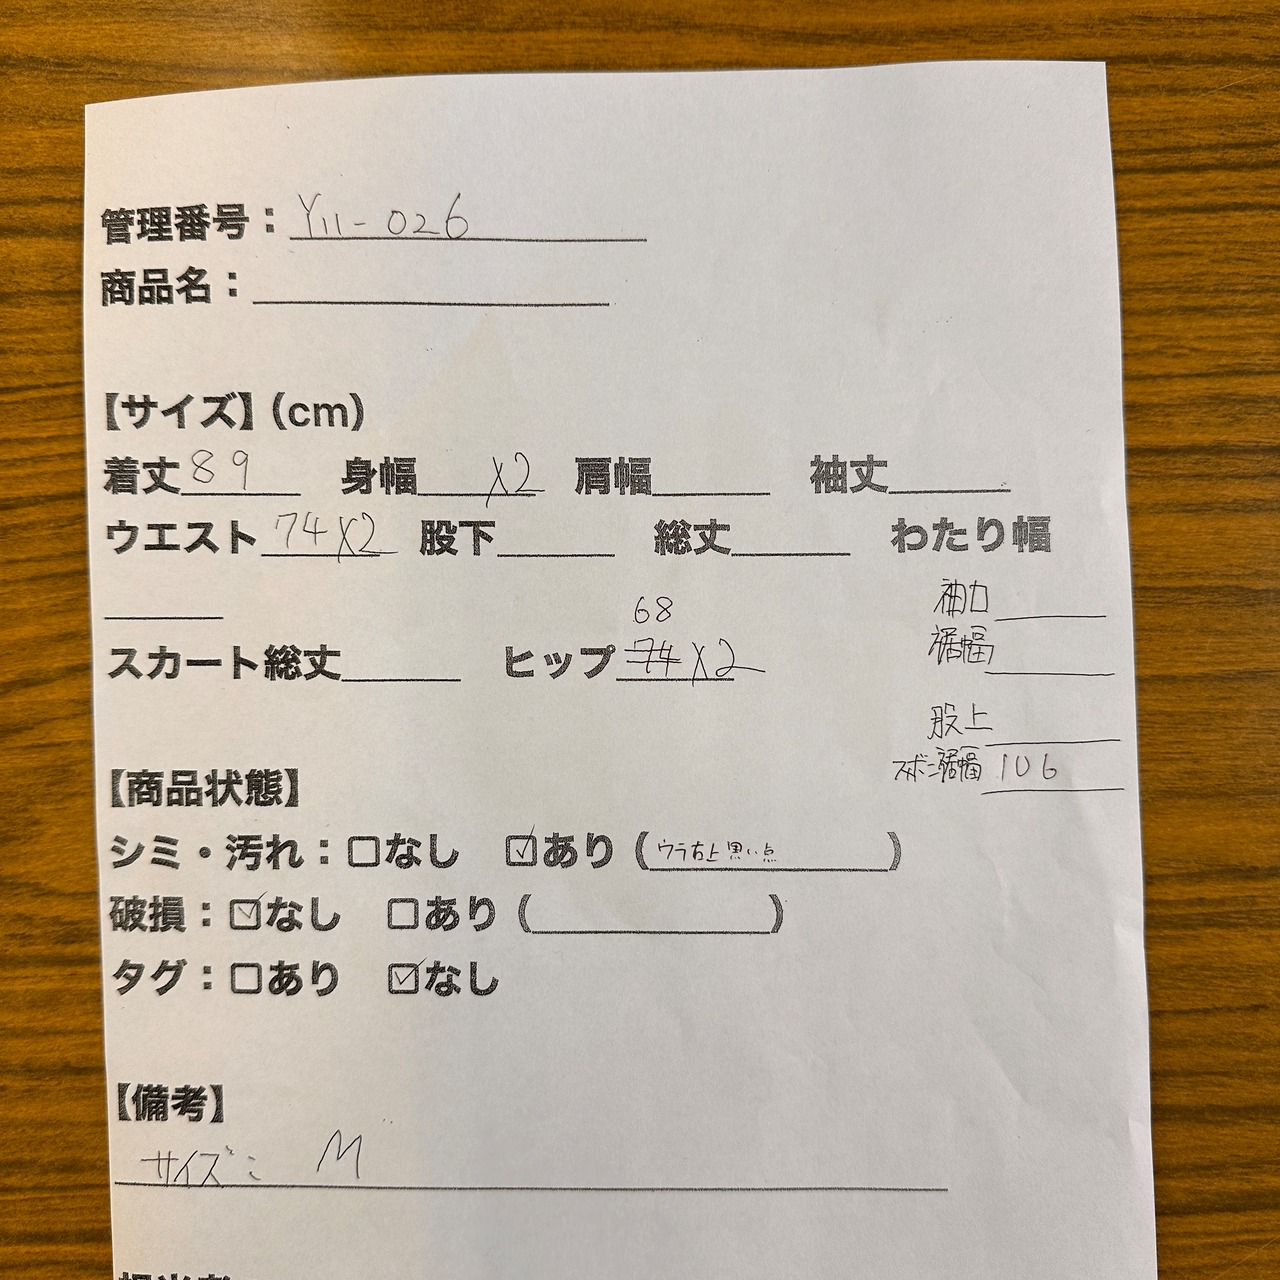 管理番号：Y11-026
商品名：
【サイズ】（cm）
着丈 89 身幅 X2 肩幅 袖丈
ウエスト 74X2 股下 総丈 わたり幅
袖口
裾幅
68
スカート総丈 ヒップ 74 X2
股上
ズボン裾幅 106
【商品状態】
シミ・汚れ：□なし ☑あり（ウラ右上黒い点）
破損：☑なし □あり（ ）
タグ：□あり ☑なし
【備考】
サイズ： M